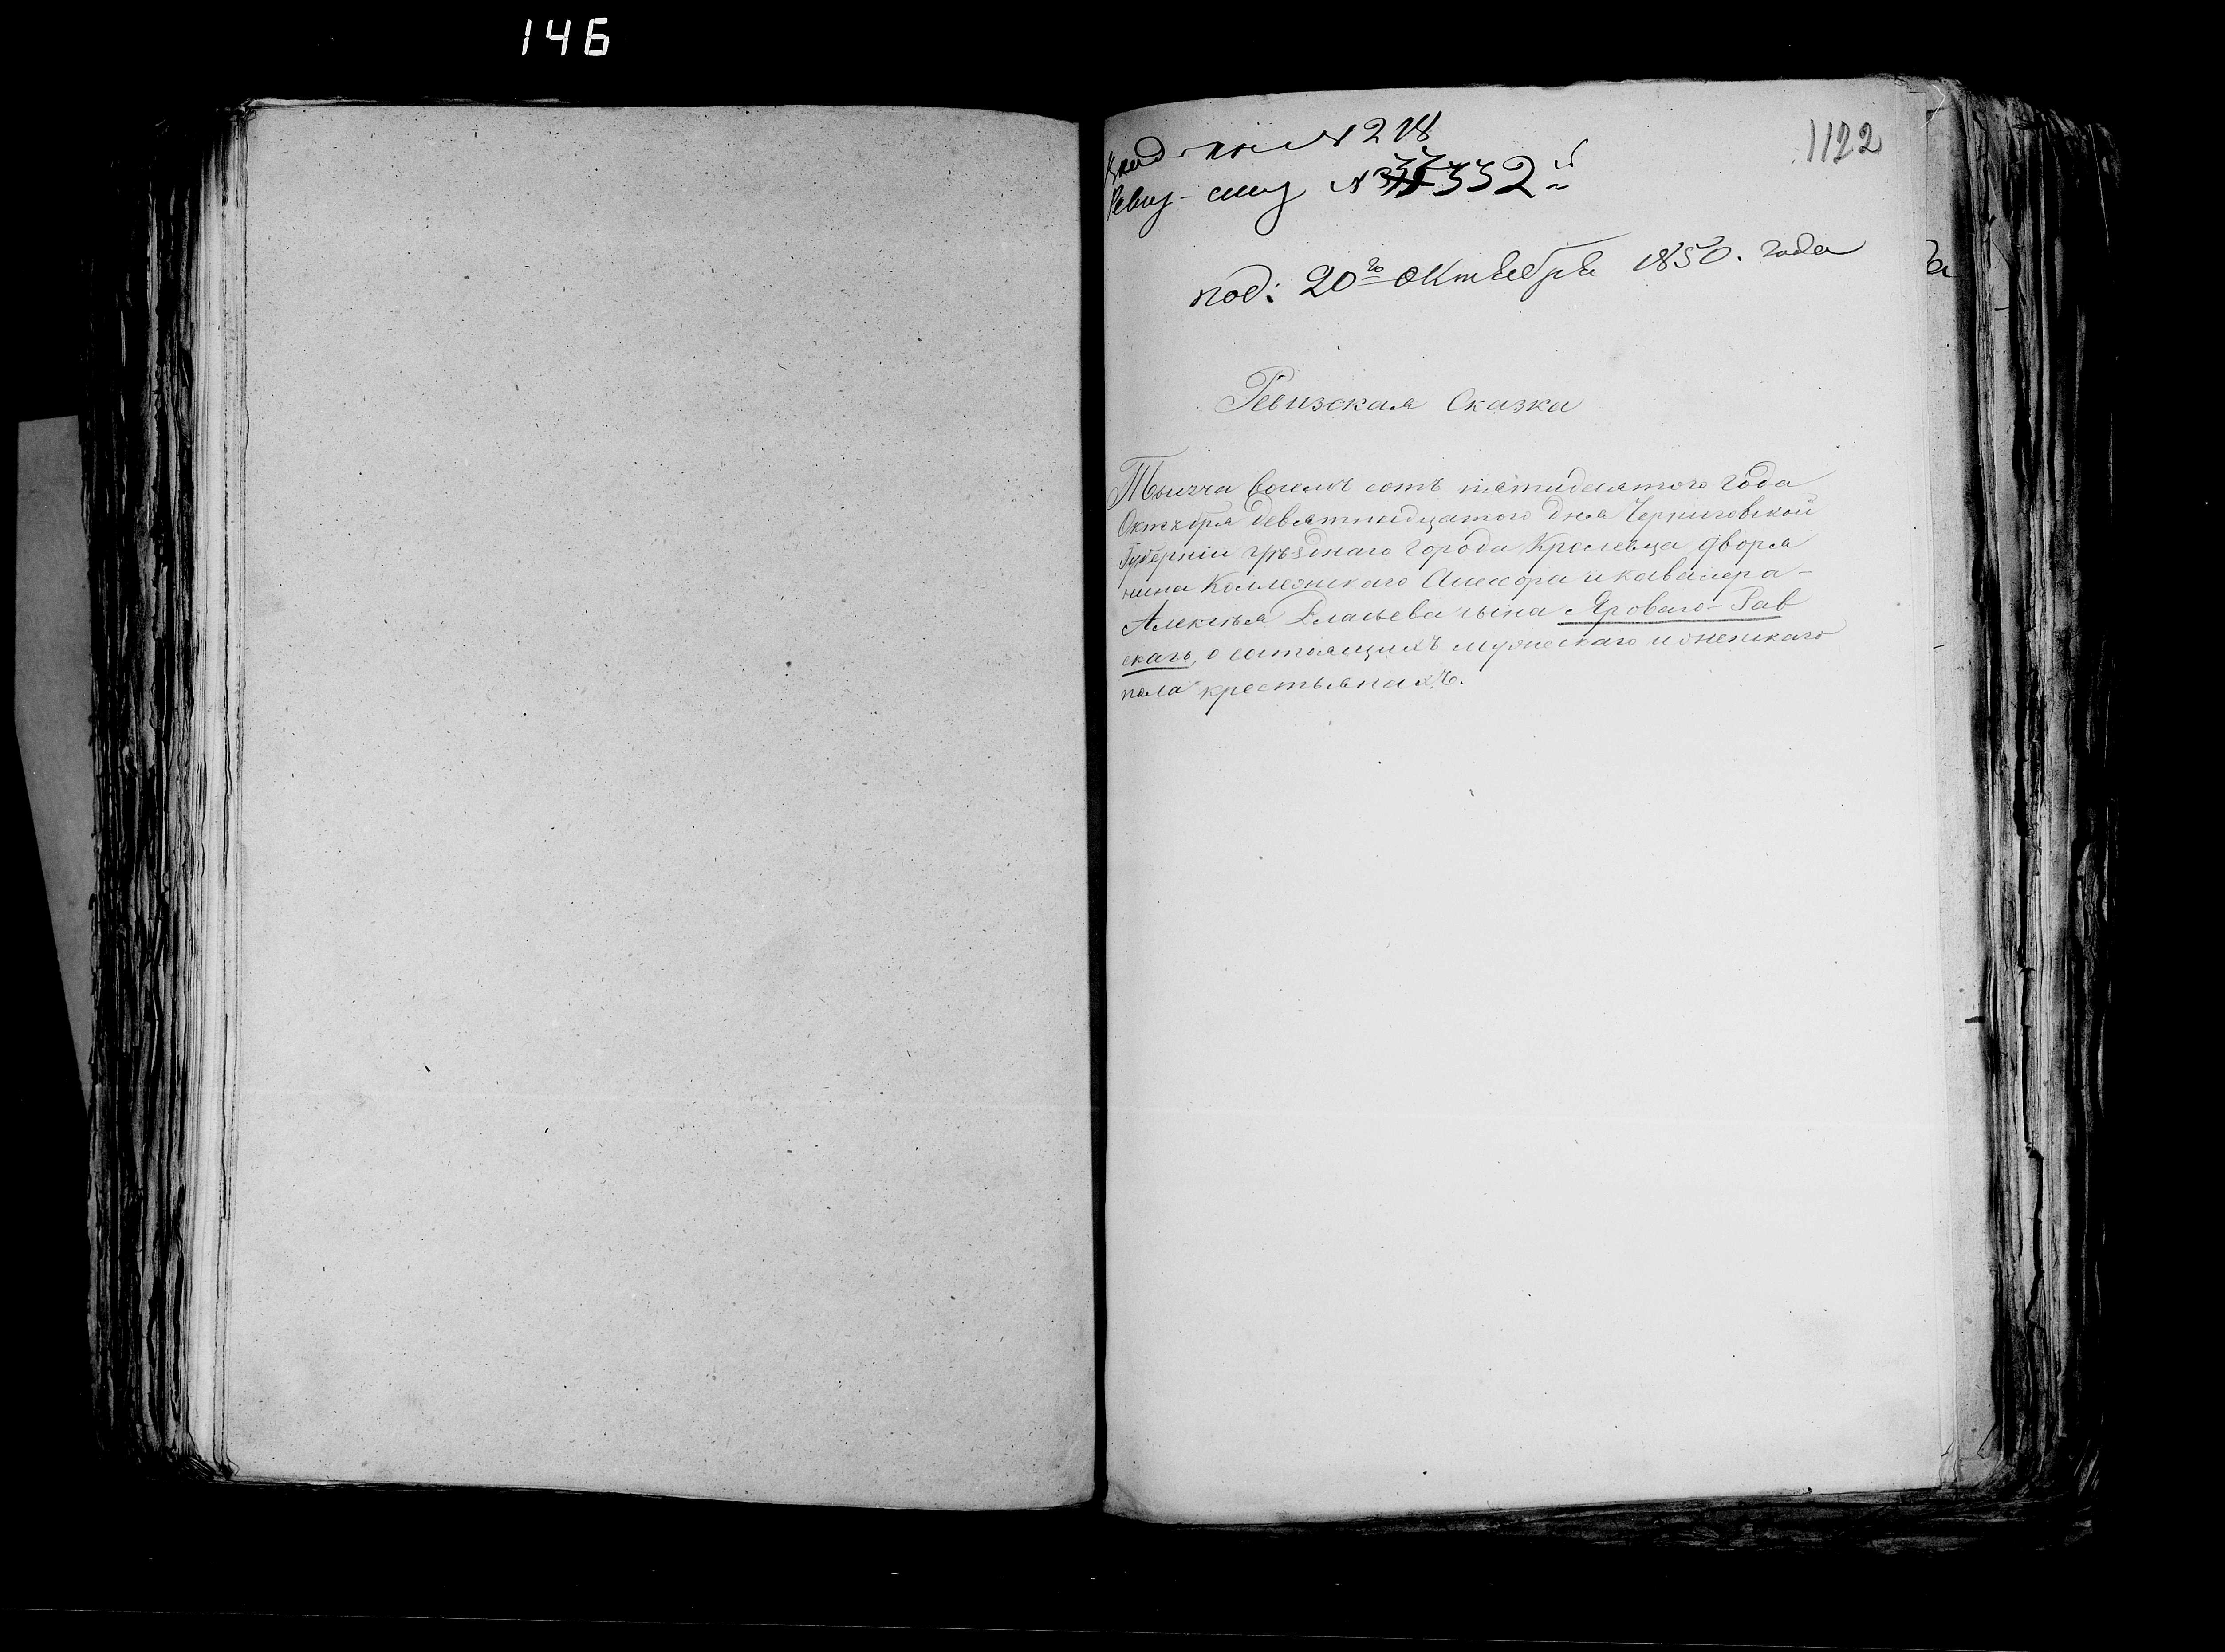 146
1122
№ 218
Ревиз-скиз № 332й
под: 20го Октября 1850. года
Ревизская Сказка
Тысяча восемь сотъ пятидесятого года
Октября девятнадцатого дня Черниговской
Губерніи уѣзднаго города Кролевца дворя
нина Коллежскаго Ассесора и кавалера-
Алексѣя сына Яроваго-Рав
скаго, о состоящихъ мужескаго и женскаго
пола крестьянахъ.